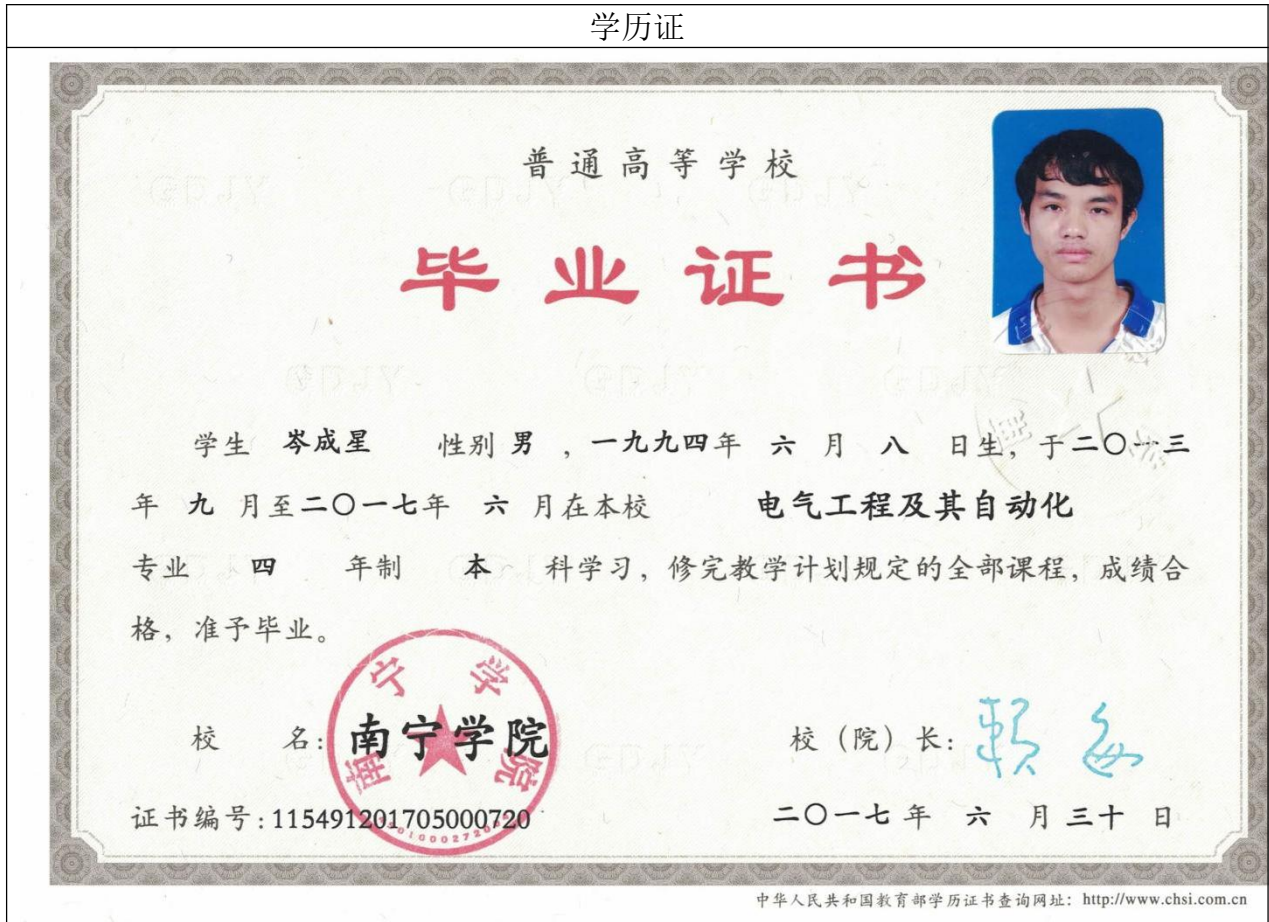 学历证
普通高等学校
毕业证书
学生 岑成星 性别 男 ，一九九四年 六 月 八 日生，于二〇一三
年 九 月至二〇一七年 六 月在本校 电气工程及其自动化
专业 四 年制 本 科学习，修完教学计划规定的全部课程，成绩合
格，准予毕业。
南宁学院
校 名：南宁学院 校（院）长：
证书编号：115491201705000720 二〇一七年 六 月 三十 日
中华人民共和国教育部学历证书查询网址：http://www.chsi.com.cn